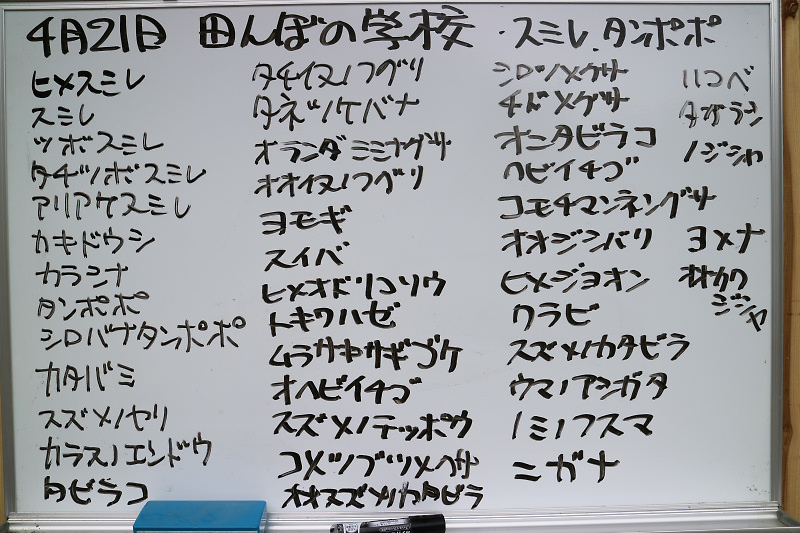 4月21日 田んぼの学校 ・スミレ、タンポポ
ヒメスミレ
スミレ
ツボスミレ
タチツボスミレ
アリアケスミレ
カキドウシ
カラシナ
タンポポ
シロバナタンポポ
カタバミ
スズメノヤリ
カラスノエンドウ
タビラコ
タチイヌノフグリ
タネツケバナ
オランダミミナグサ
オオイヌノフグリ
ヨモギ
スイバ
ヒメオドリコソウ
トキワハゼ
ムラサキサギゴケ
オヘビイチゴ
スズメノテッポウ
コメツブツメクサ
オオスズメノカタビラ
シロツメクサ
チドメグサ
オニタビラコ
ヘビイチゴ
コモチマンネングサ
オオジシバリ
ヒメジョオン
ワラビ
スズメノカタビラ
ウマノアシガタ
ノミノフスマ
ニガナ
ハコベ
タガラシ
ノジシャ
ヨメナ
オオカワ
ジシャ